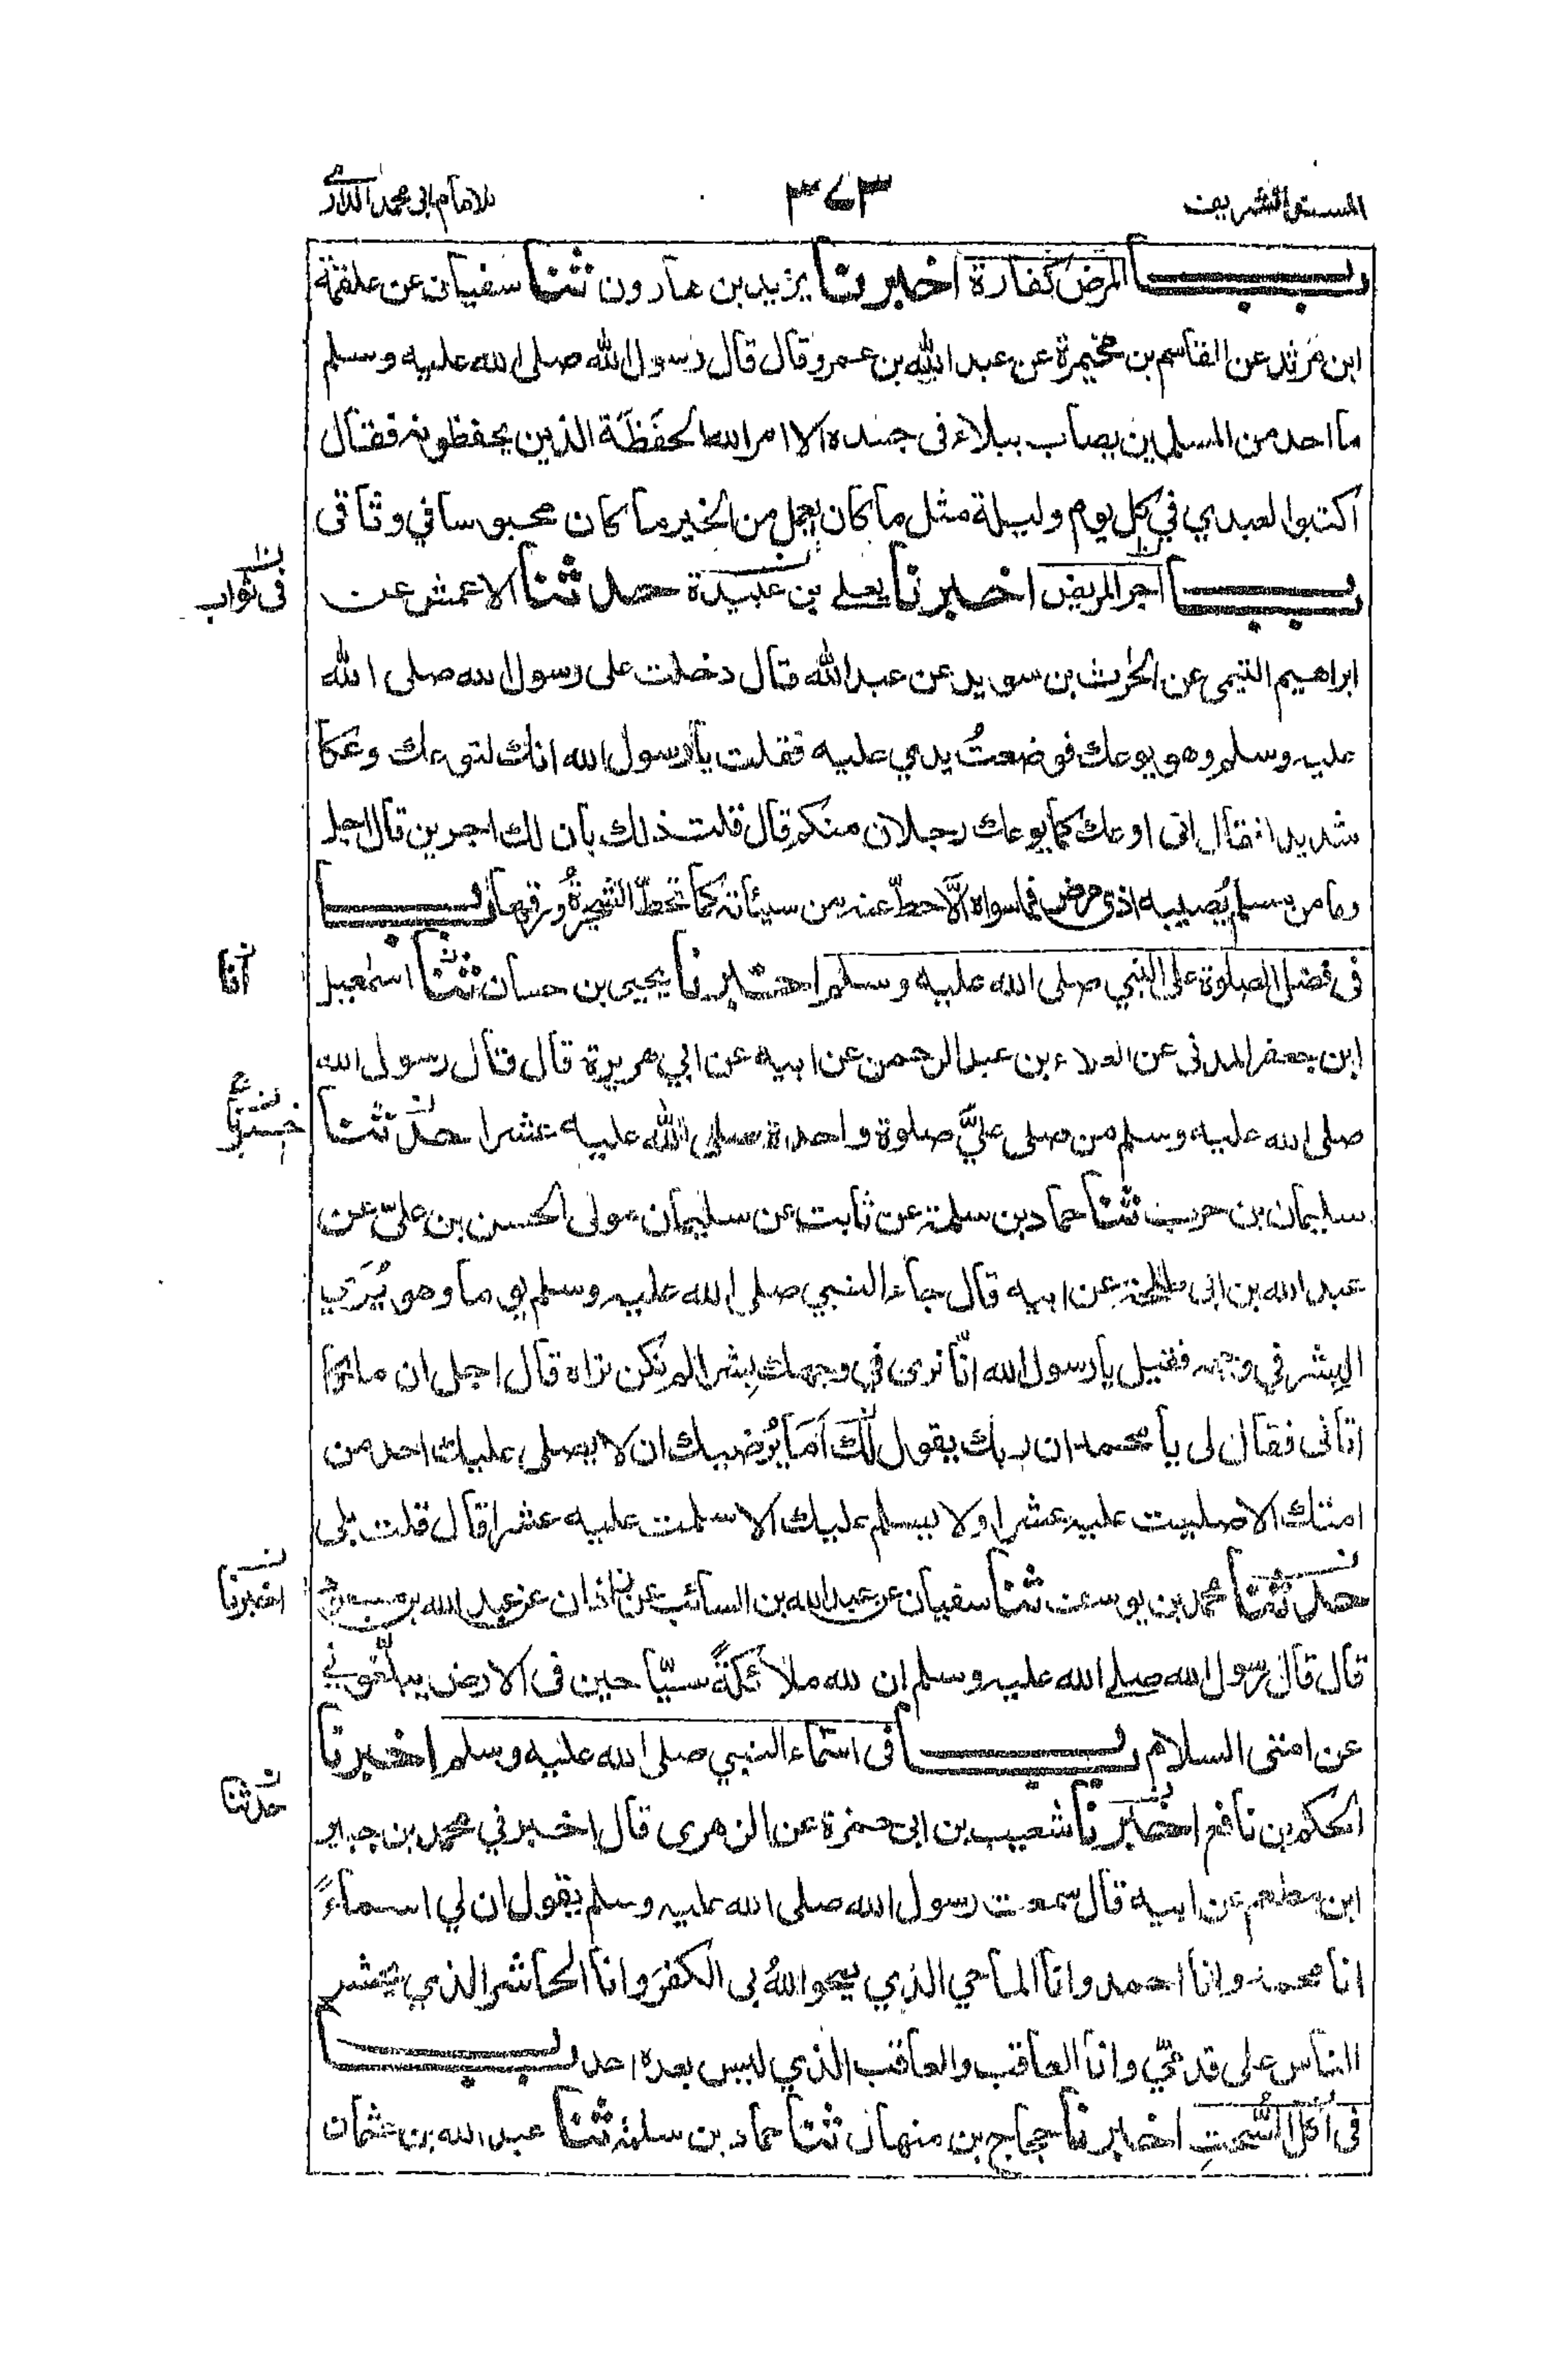 المسند الشريف ٣٧٣ للامام ابی محمد الدارمی
بــــاب المرض كفارة اخبرنا يزيد بن هارون ثنا سفيان عن علقمة
ابن مَرثد عن القاسم بن مخيمرة عن عبد الله بن عمرو قال قال رسول الله صلى الله عليه وسلم
ما احد من المسلمين يصاب ببلاء فى جسده الا امر الله الحفَظَة الذين يحفظونه فقال
اكتبوا لعبدي في كل يوم وليلة مثل ما كان يعمل من الخير ما كان محبوسا في وثاقى
بــــاب اجر المريض اخبرنا يعلے بن عبيدة حدثنا الاعمش عن
فى ثواب
ابراهيم التيمى عن الحٰرث بن سويد عن عبد الله قال دخلت على رسول الله صلى الله
عليه وسلم وهو يوعك فوضعتُ يدي عليه فقلت يا رسول الله انك لتوعك وعكا
شديدا فقال انى اوعك كما يوعك رجلان منكم قال قلت ذلك بان لك اجرين قال اجل
وما من مسلم يُصيبه اذى مرض فما سواه الَّا حطّ عنه من سيئاته كما تحطّ الشجرةُ ورقها بــــاب
فى فضل الصلوة على النبي صلى الله عليه وسلم اخبرنا يحيى بن حسان ثنا اسمٰعيل
انا
ابن جعفر المدنى عن العلاء بن عبد الرحمن عن ابيه عن ابي هريرة قال قال رسول الله
صلى الله عليه وسلم من صلى عليَّ صلوة واحدة صلى الله عليه عشرا حدثنا
اخبرنا
سليمان بن حرب ثنا حماد بن سلمة عن ثابت عن سليمان مولى الحسن بن علىّ عن
عبد الله بن ابى طلحة عن ابيه قال جاء النبي صلى الله عليه وسلم يوما وهو يُرَى
البِشر في وجهه فقيل يا رسول الله انّا نرى في وجهك بِشرا لم نكن نراه قال اجل ان ملكا
اتانى فقال لى يا محمد ان ربك يقول لك اَمَا يُرضيك ان لا يصلى عليك احد من
امتك الا صليت عليه عشرا ولا يسلم عليك الا سلمت عليه عشرا قال قلت بلى
حدثنا محمد بن يوسف ثنا سفيان عن عبد الله بن السائب عن زاذان عن عبد الله بن
اخبرنا
قال قال رسول الله صلے الله عليه وسلم ان لله ملائكةً سيّاحين فى الارض يبلّغوني
عن امتى السلام بــــاب فى اسماء النبي صلى الله عليه وسلم اخبرنا
الحكم بن نافع اخبرنا شعيب بن ابى حمزة عن الزهرى قال اخبرني محمد بن جبير
حدثنا
ابن مطعم عن ابيه قال سمعت رسول الله صلى الله عليه وسلم يقول ان لي اسماءً
انا محمد وانا احمد وانا الماحي الذي يمحو اللهُ بى الكفرَ وانا الحاشر الذي يحشر
الناس على قدمىّ وانا العاقب والعاقب الذي ليس بعده احد بــــاب
فى اكل السُّحتِ اخبرنا حجاج بن منهال ثنا حماد بن سلمة ثنا عبد الله بن عثمان